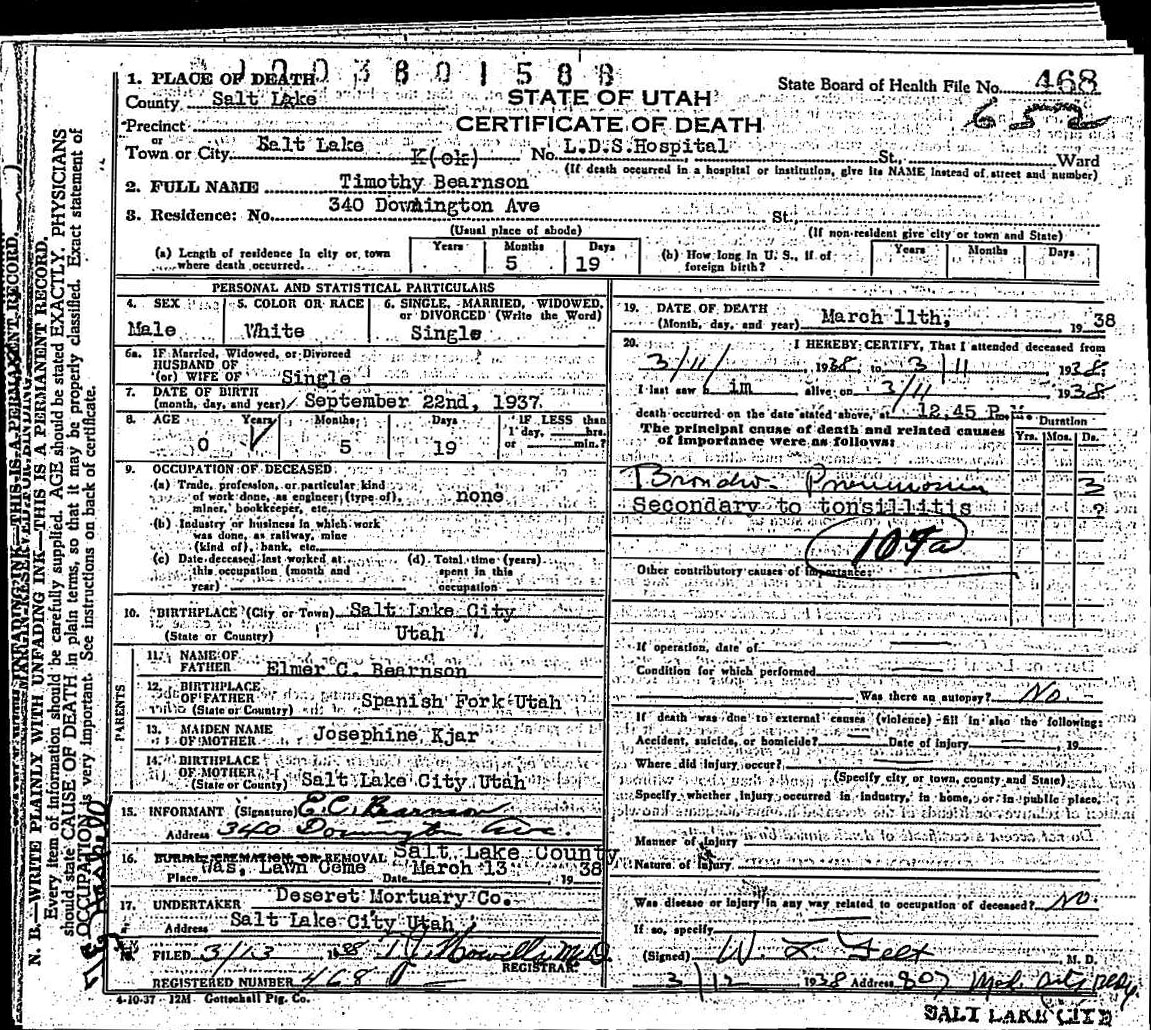 1003801588
1. PLACE OF DEATH
County Salt Lake
STATE OF UTAH
State Board of Health File No. 468
652
Precinct
CERTIFICATE OF DEATH
or
Town or City Salt Lake K(ok) No. L.D.S.Hospital St., Ward
(If death occurred in a hospital or institution, give its NAME instead of street and number)
2. FULL NAME Timothy Bearnson
3. Residence: No. 340 Downington Ave St.
(Usual place of abode)
(If non-resident give city or town and State)
(a) Length of residence in city or town where death occurred. Years Months 5 Days 19
(b) How long in U. S., if of foreign birth? Years Months Days
PERSONAL AND STATISTICAL PARTICULARS
4. SEX Male
5. COLOR OR RACE White
6. SINGLE, MARRIED, WIDOWED, or DIVORCED (Write the Word) Single
6a. IF Married, Widowed, or Divorced
HUSBAND OF
(or) WIFE OF Single
7. DATE OF BIRTH
(month, day, and year) September 22nd, 1937
8. AGE Years 0 Months 5 Days 19 IF LESS than 1 day, hrs. or min.?
9. OCCUPATION OF DECEASED
(a) Trade, profession, or particular kind
of work done, as engineer (type of), none
miner, bookkeeper, etc.
(b) Industry or business in which work
was done, as railway, mine
(kind of), bank, etc.
(c) Date deceased last worked at this occupation (month and year)
(d) Total time (years) spent in this occupation
10. BIRTHPLACE (City or Town) Salt Lake City
(State or Country) Utah
PARENTS
11. NAME OF
FATHER Elmer C. Bearnson
12. BIRTHPLACE
OF FATHER Spanish Fork Utah
(State or Country)
13. MAIDEN NAME
OF MOTHER Josephine Kjar
14. BIRTHPLACE
OF MOTHER
(State or Country) Salt Lake City Utah
15. INFORMANT (Signature) E.C. Bearnson
Address 340 Downington Ave.
16. BURIAL CREMATION OR REMOVAL Salt Lake County
Place Was, Lawn Ceme Date March 13 1938
17. UNDERTAKER Deseret Mortuary Co.
Address Salt Lake City Utah
FILED 3/13 1938 Howells M.D.
REGISTRAR
REGISTERED NUMBER 468
4-10-37 - 12M Gottschall Ptg. Co.
19. DATE OF DEATH
(Month, day, and year) March 11th, 1938
20. I HEREBY CERTIFY, That I attended deceased from
3/11, 1938 to 3/11 1938.
I last saw h im alive on 3/11 1938.
death occurred on the date stated above, at 12.45 P.M.
The principal cause of death and related causes
of importance were as follows:
Duration
Yrs. Mos. Ds.
Broncho- Pneumonia 3
Secondary to tonsillitis ?
107a
Other contributory causes of importance:
If operation, date of
Condition for which performed
Was there an autopsy? No
If death was due to external causes (violence) fill in also the following:
Accident, suicide, or homicide? Date of injury , 19
Where did injury occur?
(Specify city or town, county and State)
Specify whether injury occurred in industry, in home, or in public place.
Manner of injury
Nature of injury
Was disease or injury in any way related to occupation of deceased? No.
If so, specify
(Signed) W. L. Felt, M. D.
3/12 1938 Address 807 Med. Arts Bldg.
SALT LAKE CITY
N. B.—WRITE PLAINLY WITH UNFADING INK—THIS IS A PERMANENT RECORD.
Every item of information should be carefully supplied. AGE should be stated EXACTLY. PHYSICIANS
should state CAUSE OF DEATH in plain terms, so that it may be properly classified. Exact statement of
OCCUPATION is very important. See instructions on back of certificate.